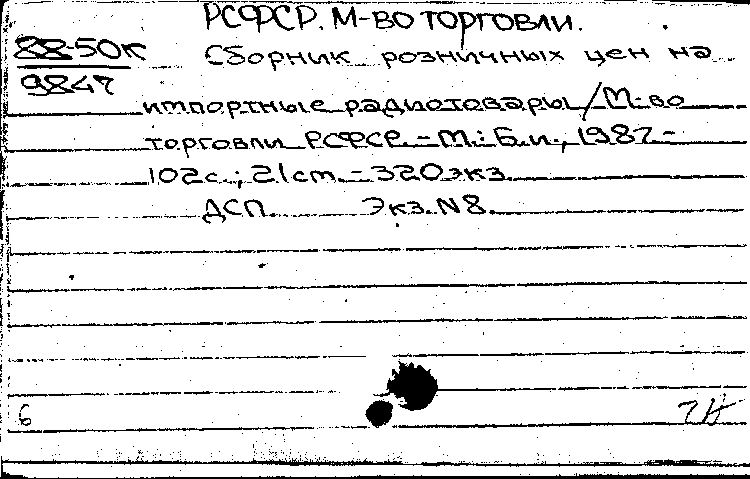 РСФСР. М-ВО ТОРГОВЛИ.
88-50к
9847
Сборник розничных цен на
импортные радиотовары/М-во
торговли РСФСР. - М.: Б.и., 1987. -
102с.; 21см. - 320экз.
ДСП. Экз. N 8.
6